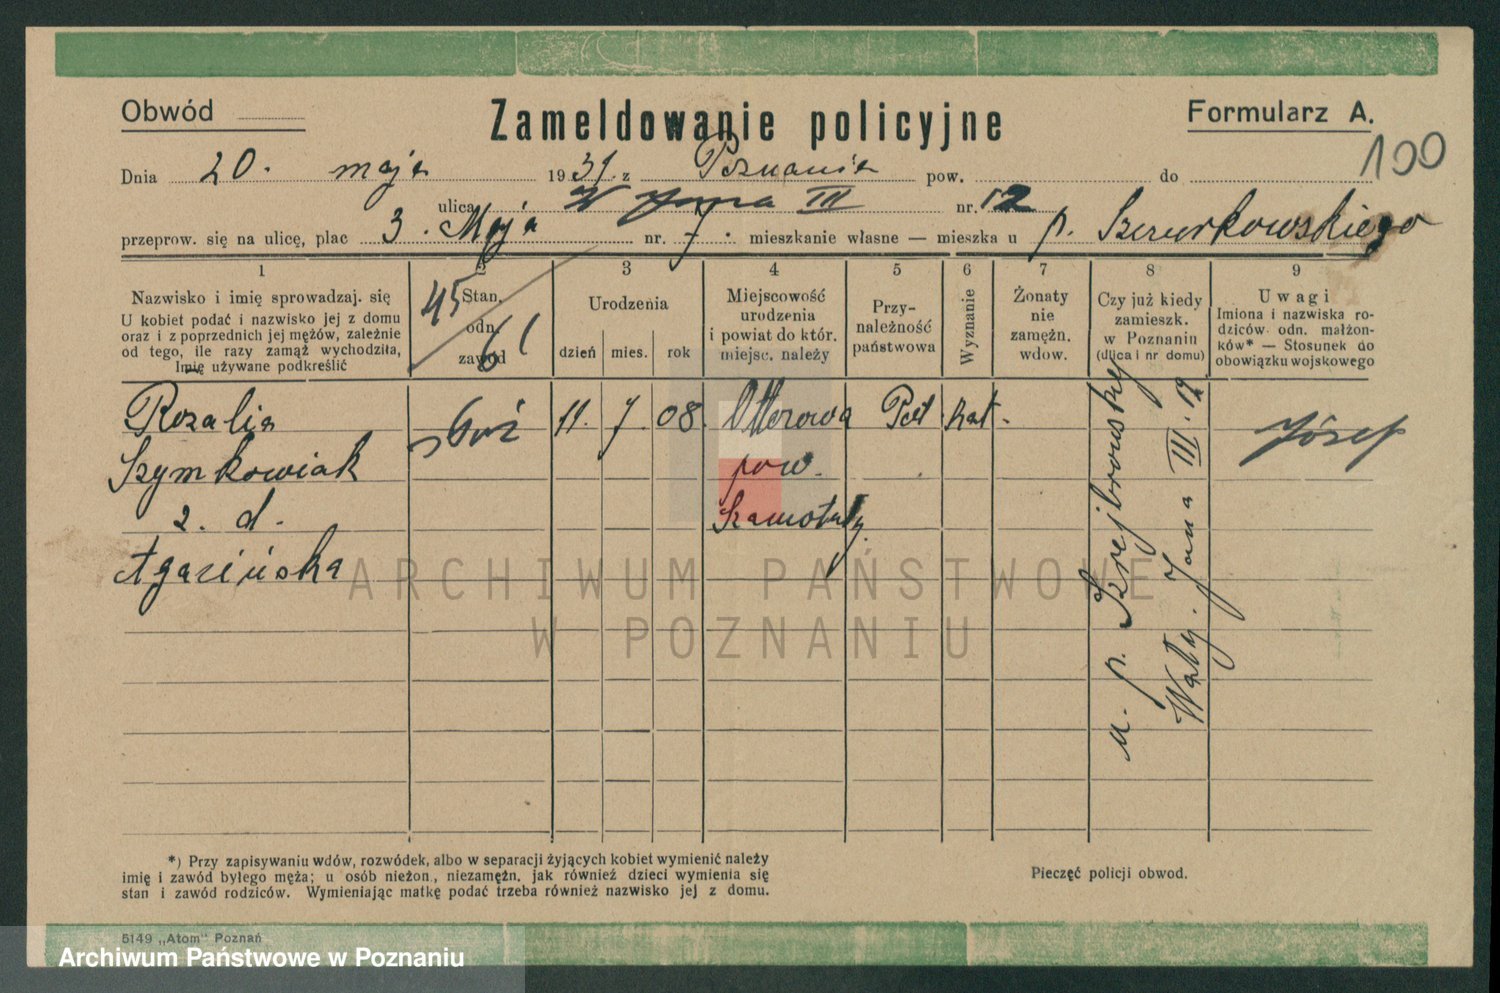 Obwód
Zameldowanie policyjne
Formularz A.
100
Dnia 20. maja 1931. z Poznania pow. do
ulica W Jana III nr. 12
przeprow. się na ulicę, plac 3. Maja nr. 7. mieszkanie własne — mieszka u p. Szczurkowskiego
1
2
3
4
5
6
7
8
9
Nazwisko i imię sprowadzaj. się
U kobiet podać i nazwisko jej z domu
oraz i z poprzednich jej mężów, zależnie
od tego, ile razy zamąż wychodziła,
Imię używane podkreślić
Stan,
odn.
zawód
45
61
Urodzenia
dzień mies. rok
Miejscowość
urodzenia
i powiat do któr.
miejsc. należy
Przy-
należność
państwowa
Wyznanie
Żonaty
nie
zamężn.
wdow.
Czy już kiedy
zamieszk.
w Poznaniu
(ulica i nr domu)
Uwagi
Imiona i nazwiska ro-
dziców odn. małżon-
ków* — Stosunek do
obowiązku wojskowego
Rozalia 11. 7. 08. Otorowo Pol kat. Józef
Szymkowiak pow.
z. d. Szamotuły
Agacińska
u. p. Szejbrowskiej
Wały. Jana III. 12
ARCHIWUM PAŃSTWOWE
W POZNANIU
*) Przy zapisywaniu wdów, rozwódek, albo w separacji żyjących kobiet wymienić należy
imię i zawód byłego męża; u osób nieżon., niezamężn. jak również dzieci wymienia się
stan i zawód rodziców. Wymieniając matkę podać trzeba również nazwisko jej z domu.
Pieczęć policji obwod.
5149 „Atom" Poznań
Archiwum Państwowe w Poznaniu